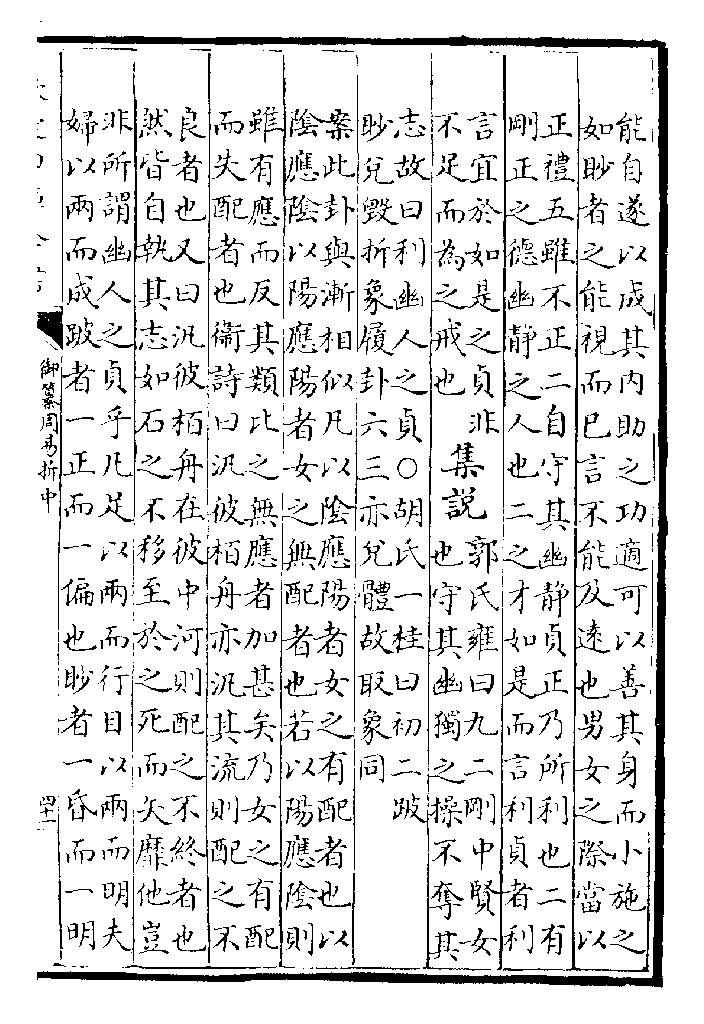 能自遂以成其内助之功適可以善其身而小施之
如眇者之能視而已言不能及遠也男女之際當以
正禮五雖不正二自守其幽静貞正乃所利也二有
剛正之德幽静之人也二之才如是而言利貞者利
言宜於如是之貞非
不足而為之戒也
集説
郭氏雍曰九二剛中賢女
也守其幽獨之操不奪其
志故曰利幽人之貞○胡氏一桂曰初二跛
眇兌毀折象履卦六三亦兌體故取象同
案此卦與漸相似凡以陰應陽者女之有配者也以
陰應陰以陽應陽者女之無配者也若以陽應陰則
雖有應而反其類比之無應者加甚矣乃女之有配
而失配者也衞詩曰汎彼栢舟亦汎其流則配之不
良者也又曰汎彼栢舟在彼中河則配之不終者也
然皆自執其志如石之不移至於之死而矢靡他豈
非所謂幽人之貞乎凡足以兩而行目以兩而明夫
婦以兩而成跛者一正而一偏也眇者一昏而一明
御纂周易折中